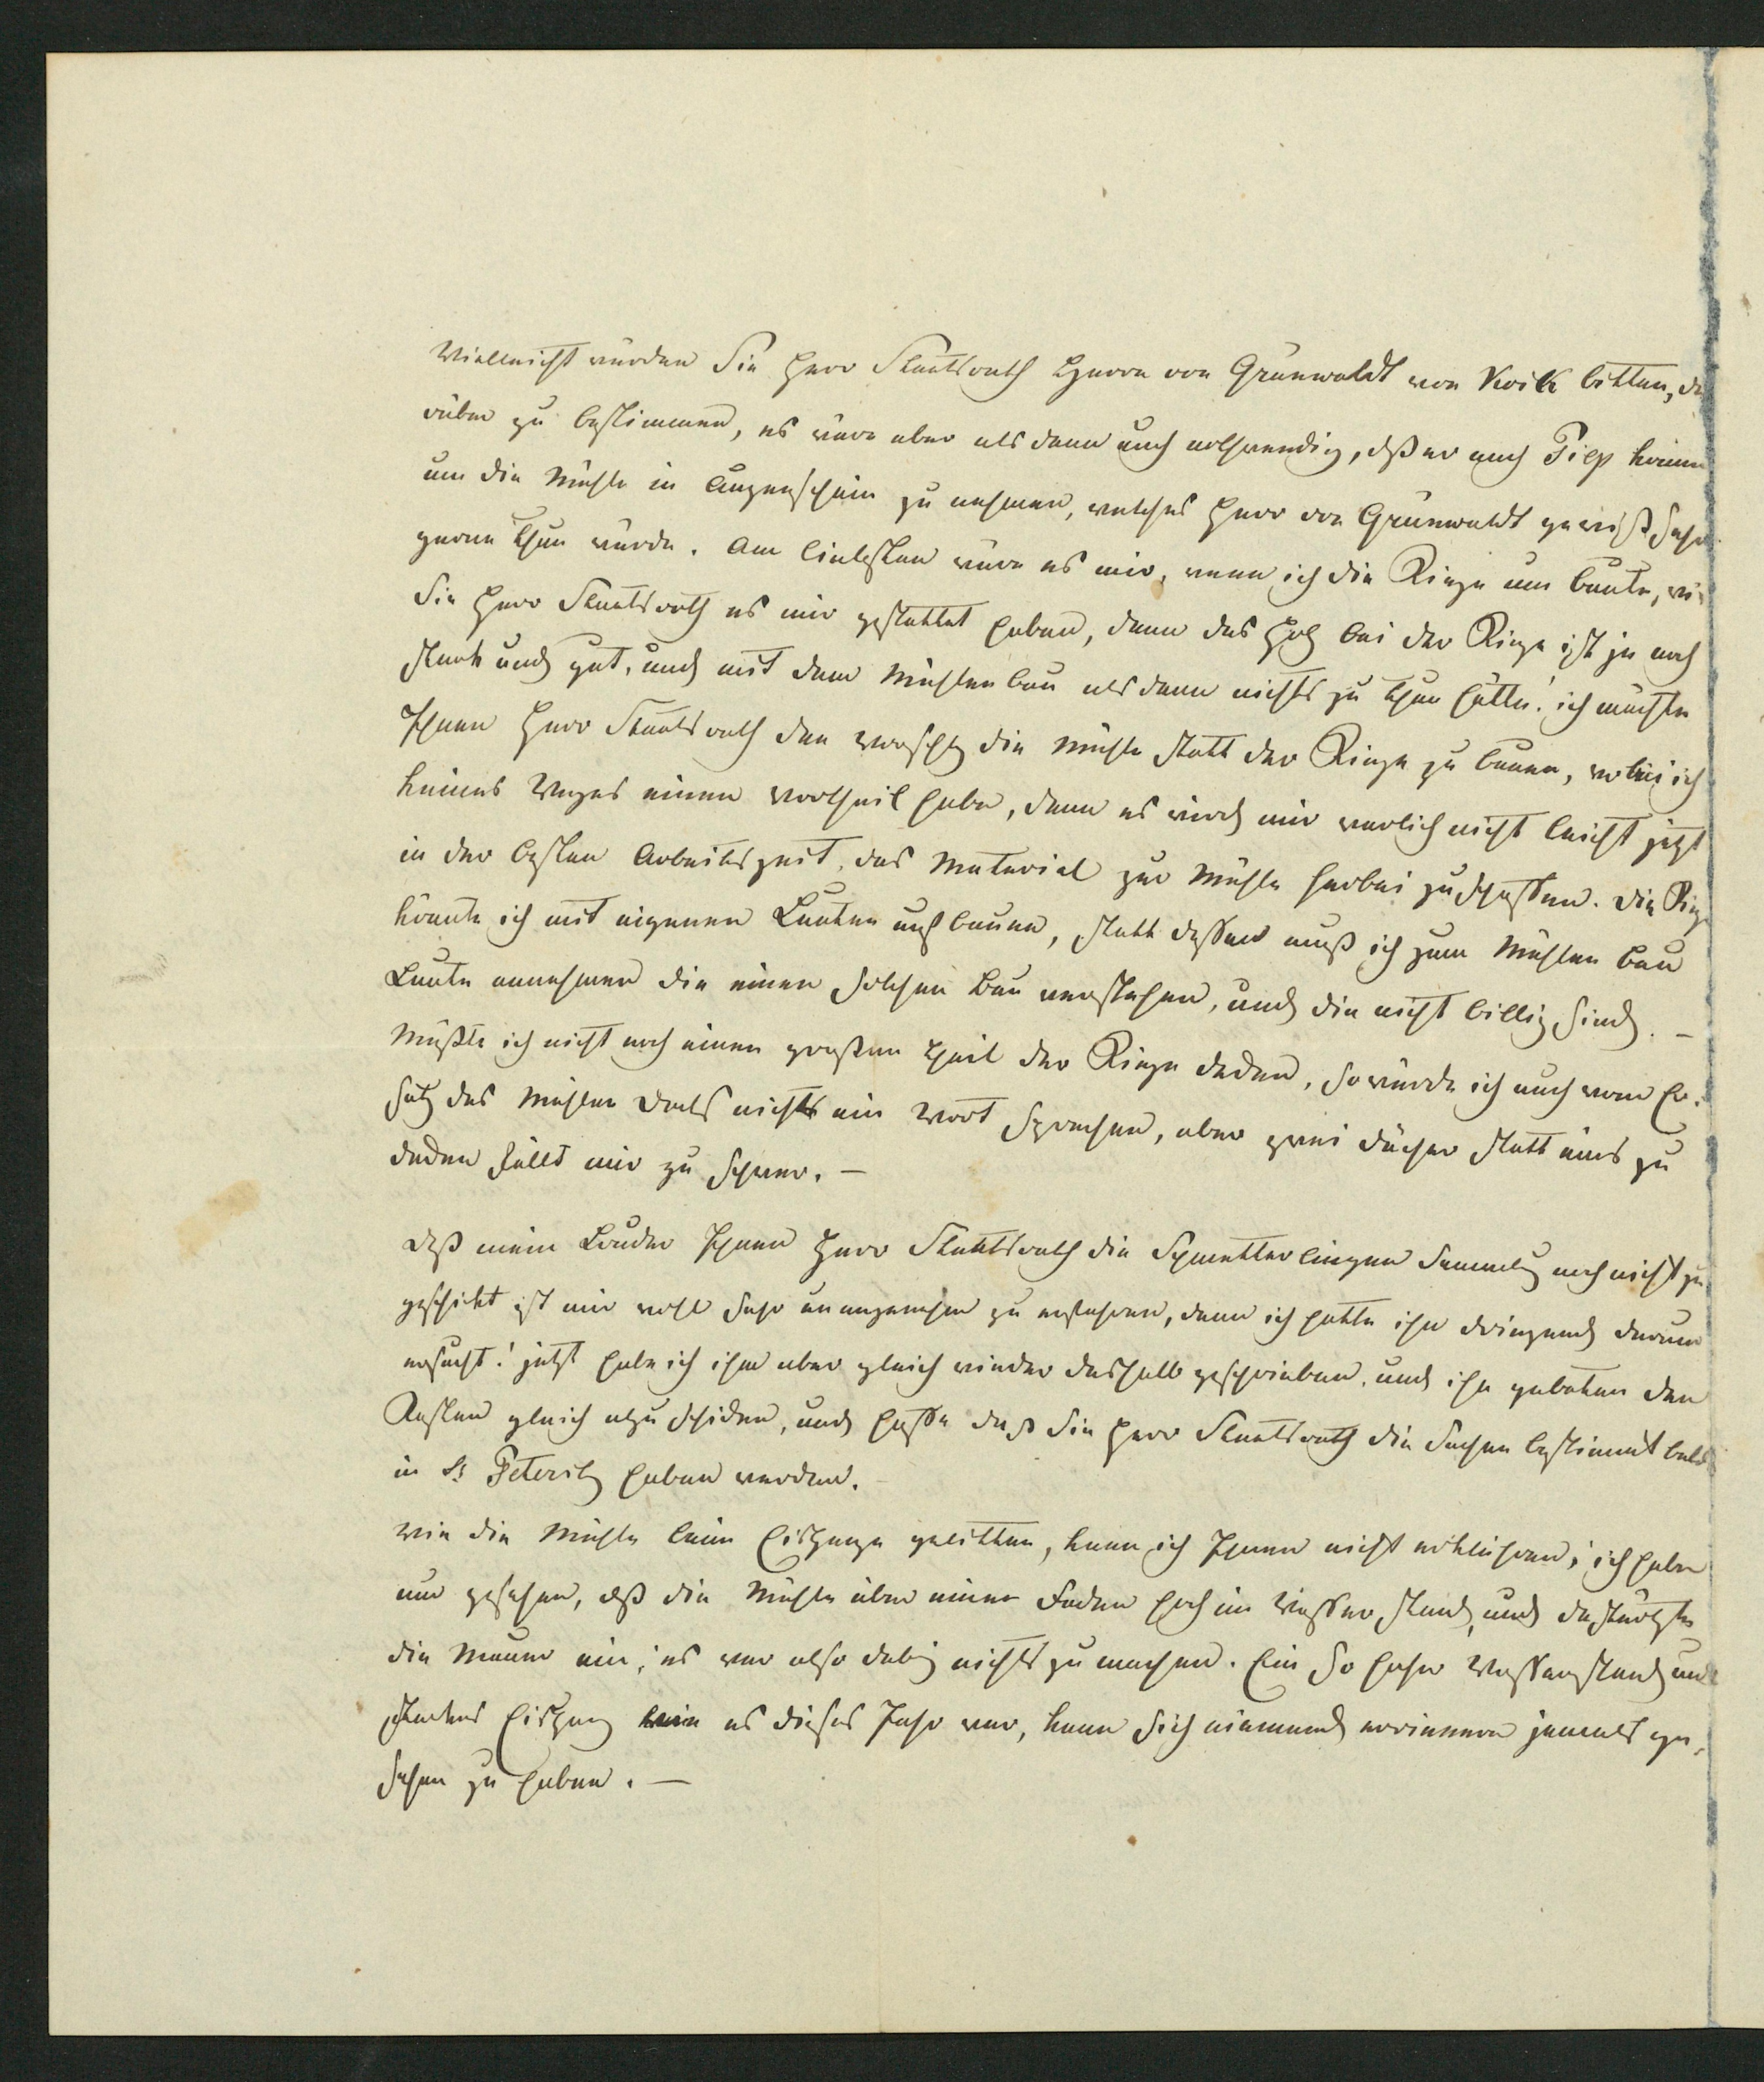 Vielleicht würden Sie Herr Staatsrath Herrn von Grünwaldt von Koik bitten, da
rüber zu bestimmen, es wäre aber als dann auch nothwendig, daß er nach Piep käme
um die Mühle in Augenschein zu nehmen, welches Herr von Grünwaldt gewiß sehr
gerne thun würde. Am liebsten wäre es mir, wenn ich die Riege um baute, wie
Sie Herr Staatsrath es mir gestattet haben, denn das Holz bei der Riege ist ja noch
stark und gut, und mit dem Mühlenbau als dann nichts zu thun hätte! ich machte
Ihnen Herr Staatsrath den Vorschlg die Mühle statt der Riege zu bauen, wobei ich
keines Weges einen Vortheil habe, denn es wird mir warlich nicht leicht jetzt
in der besten Arbeitszeit, das Material zur Mühle herbei zu schaffen. Die Riege
könnte ich mit eigenen Leuten auf bauen, statt dessen muß ich zum Mühlen bau
Leute annehmen die einen solchen Bau verstehen, und die nicht billig sind. –
Müßte ich nicht noch einen großen Theil der Riege decken, so würde ich auch vom Er-
satz des Mühlen Dachs nichts ein Wort sprechen, aber zwei Dächer statt eins zu
decken fällt mir zu schwer. –
Daß mein Bruder Ihnen Herr Staatsrath die Schmetterlingen Sammlg noch nicht zu
geschickt ist mir wohl sehr unangenehm zu erfahren, denn ich hatte ihn dringend darum
ersucht! jetzt habe ich ihm aber gleich wieder deshalb geschrieben, und ihn gebeten den
Kasten gleich abzu schicken, und hoffe daß Sie Herr Staatsrath die Sachen bestimmt bald
in St Petersbg haben werden. –
Wie die Mühle beim Eisgange gelitten, kann ich Ihnen nicht erklären; ich habe
nur gesehen, daß die Mühle über einen Faden hoch im Wasser stand, und da stürtzte
die Mauer ein; es war also dabey nichts zu machen. Ein so hoher Wasserstand und
starker Eisgang wie es dieses Jahr war, kann sich niemand erinnern jemals ge-
sehen zu haben. –